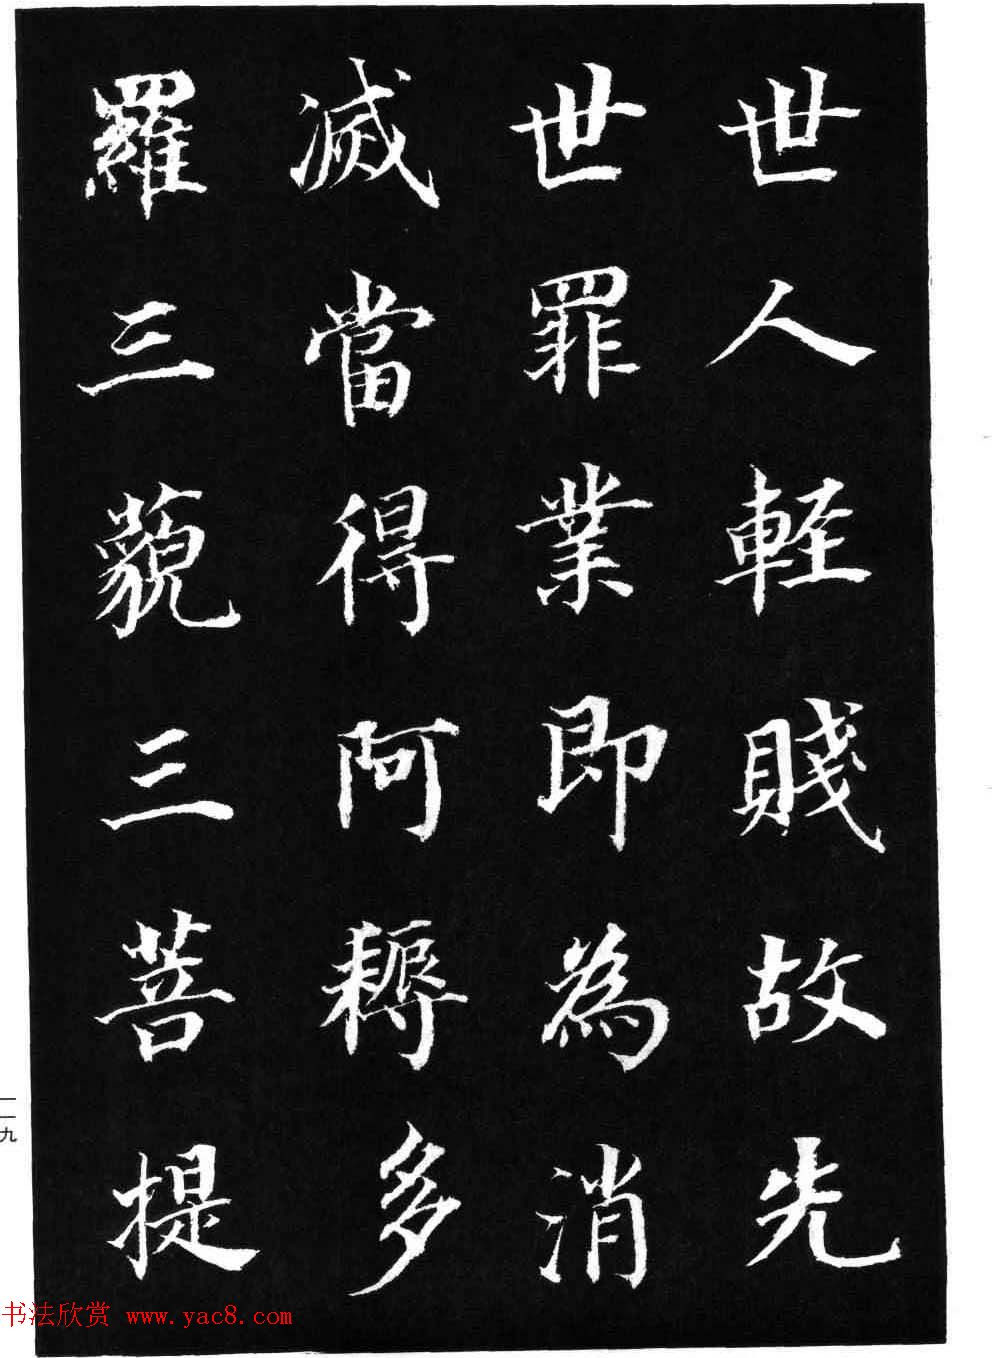 世人輕賤故先
世罪業即為消
滅當得阿耨多
羅三藐三菩提
一一九
书法欣赏 www.yac8.com